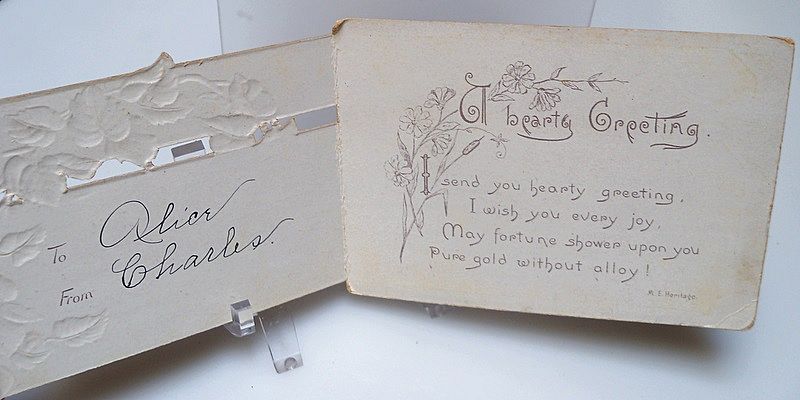 To Alice
From Charles.
A hearty Greeting.
I send you hearty greeting,
I wish you every joy,
May fortune shower upon you
Pure gold without alloy!
M. E. Heritage.